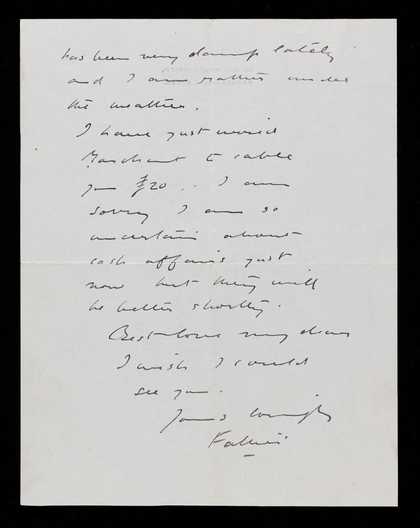 has been very damp lately
and I am rather under
the weather.
I have just wired
Marchant to cable
you £20 .. I am
sorry I am so
uncertain about
cash affairs just
now but they will
be better shortly.
Best love my dear
I wish I could
see you.
Yours lovingly
Father